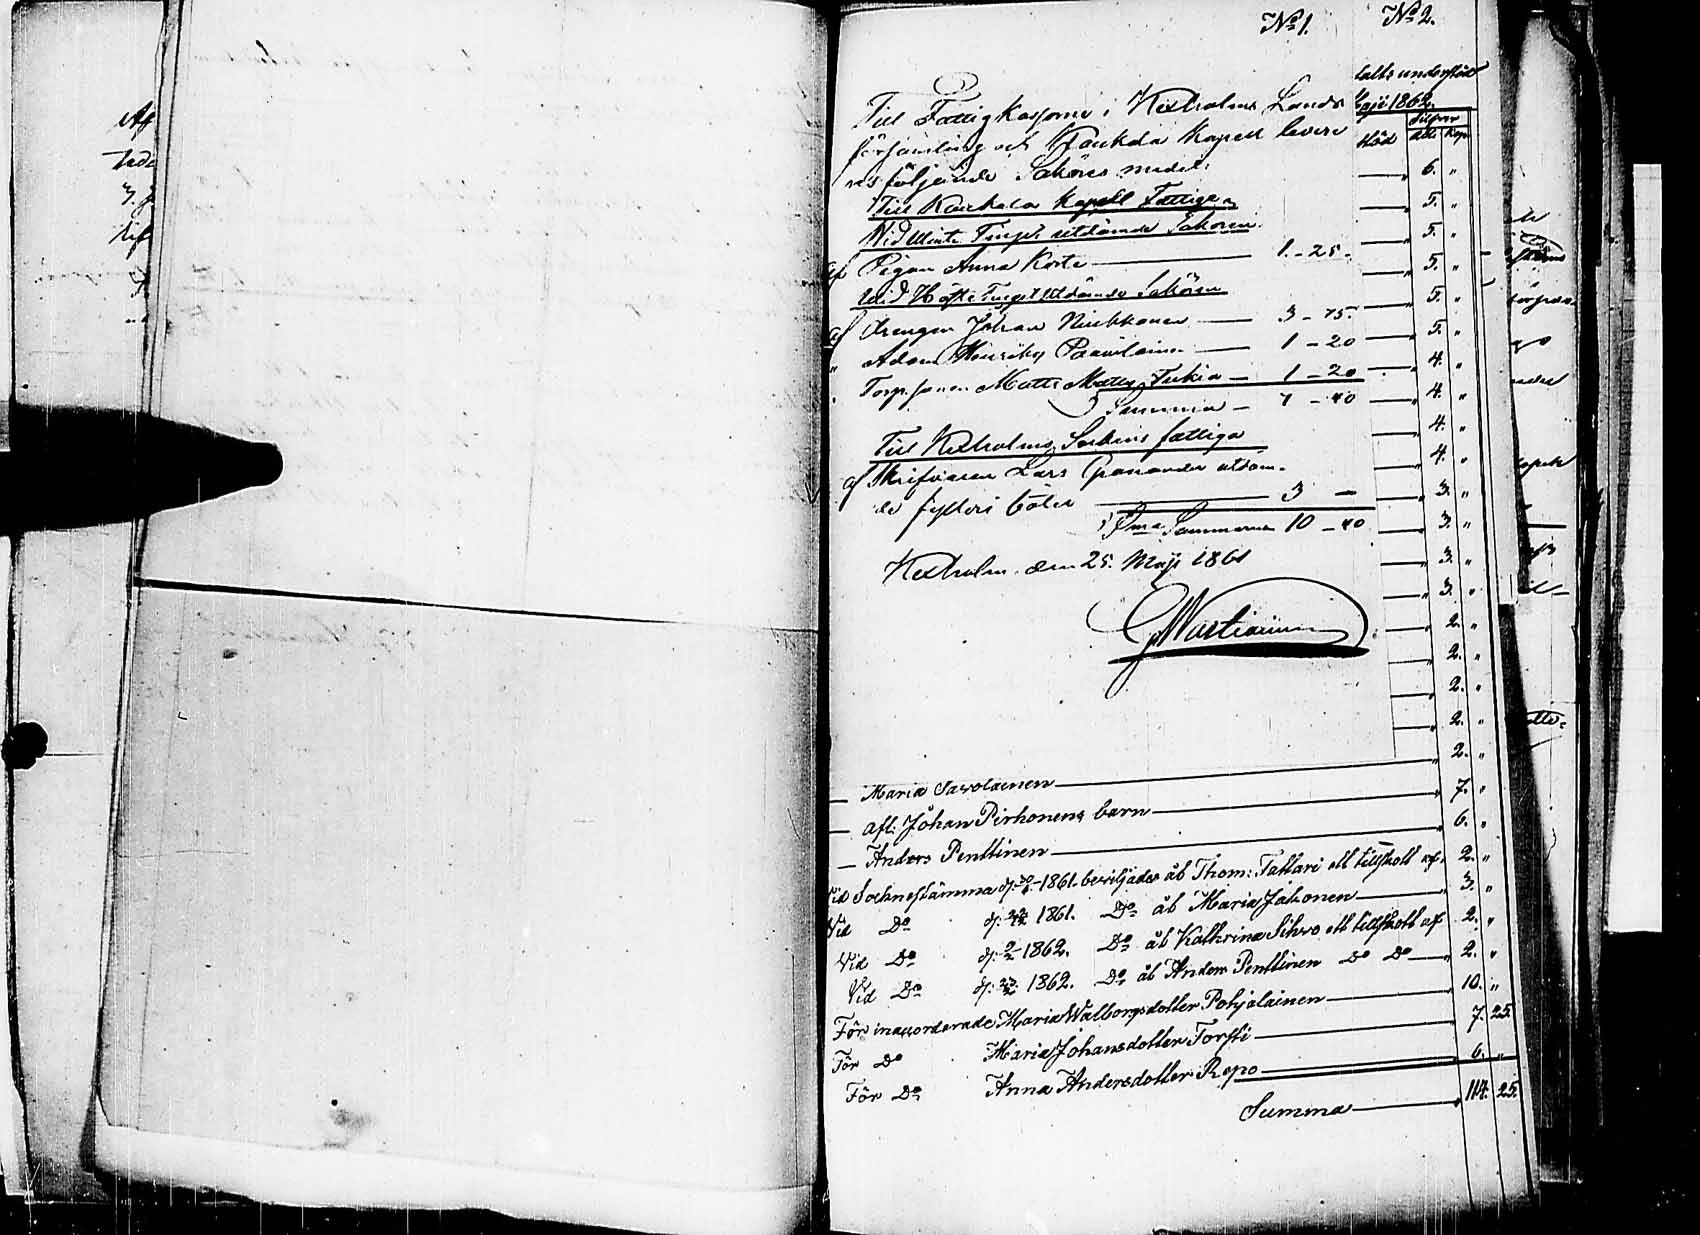 No 1.
No 2.
Till Fattigkassorne i Kexholms Lands
församling och Kaukola Kapell levere
ras följande Sakören medel:
Till Kaukola Kapell Fattiga
Vid Winter Tinget utdömde Sakören
af Pigan Anna Korte 1. - 25.
Vid Höste Tinget utdömde Sakören
af Drengen Johan 3 - 75.
" Adam Henriksson Paavilainen 1 - 20
" Matts Mattsson Tukia 1 - 20
Summa 7 - 40
Till Kexholms Sockens fattiga
af Skrifvaren Lars Granander utdöm-
de fylleri böter 3 -
Summa Summarum 10 - 40
Kexholm den 25. Maji 1861
talts understöd
Maji 1862.
Silfver
Kop
6. "
5. "
5. "
5. "
5. "
5. "
4. "
4. "
4. "
4. "
3. "
3. "
3. "
3. "
2. "
2. "
2. "
2. "
2. "
— Maria Savolainen 7. "
— afl: Johan Pirhonens barn 6. "
— Anders Penttinen
Vid Sochnestämma d. 1861 beviljades åt Thom: Tattari ett tillskott af 2. "
Vid Do d. 1861. Do åt Maria Jakonen 3. "
Vid Do d. 1862. Do åt Kathrina Sihvo ett tillskott af 2. "
Vid Do d. 1862. Do åt Anders Penttinen Do Do 2. "
För inackorderade Maria Walborgsdotter Pohjalainen 10. "
För Do Maria Johansdotter Torsti 7. 25.
För Do Anna Andersdotter Repo 6. "
Summa 114. 25.